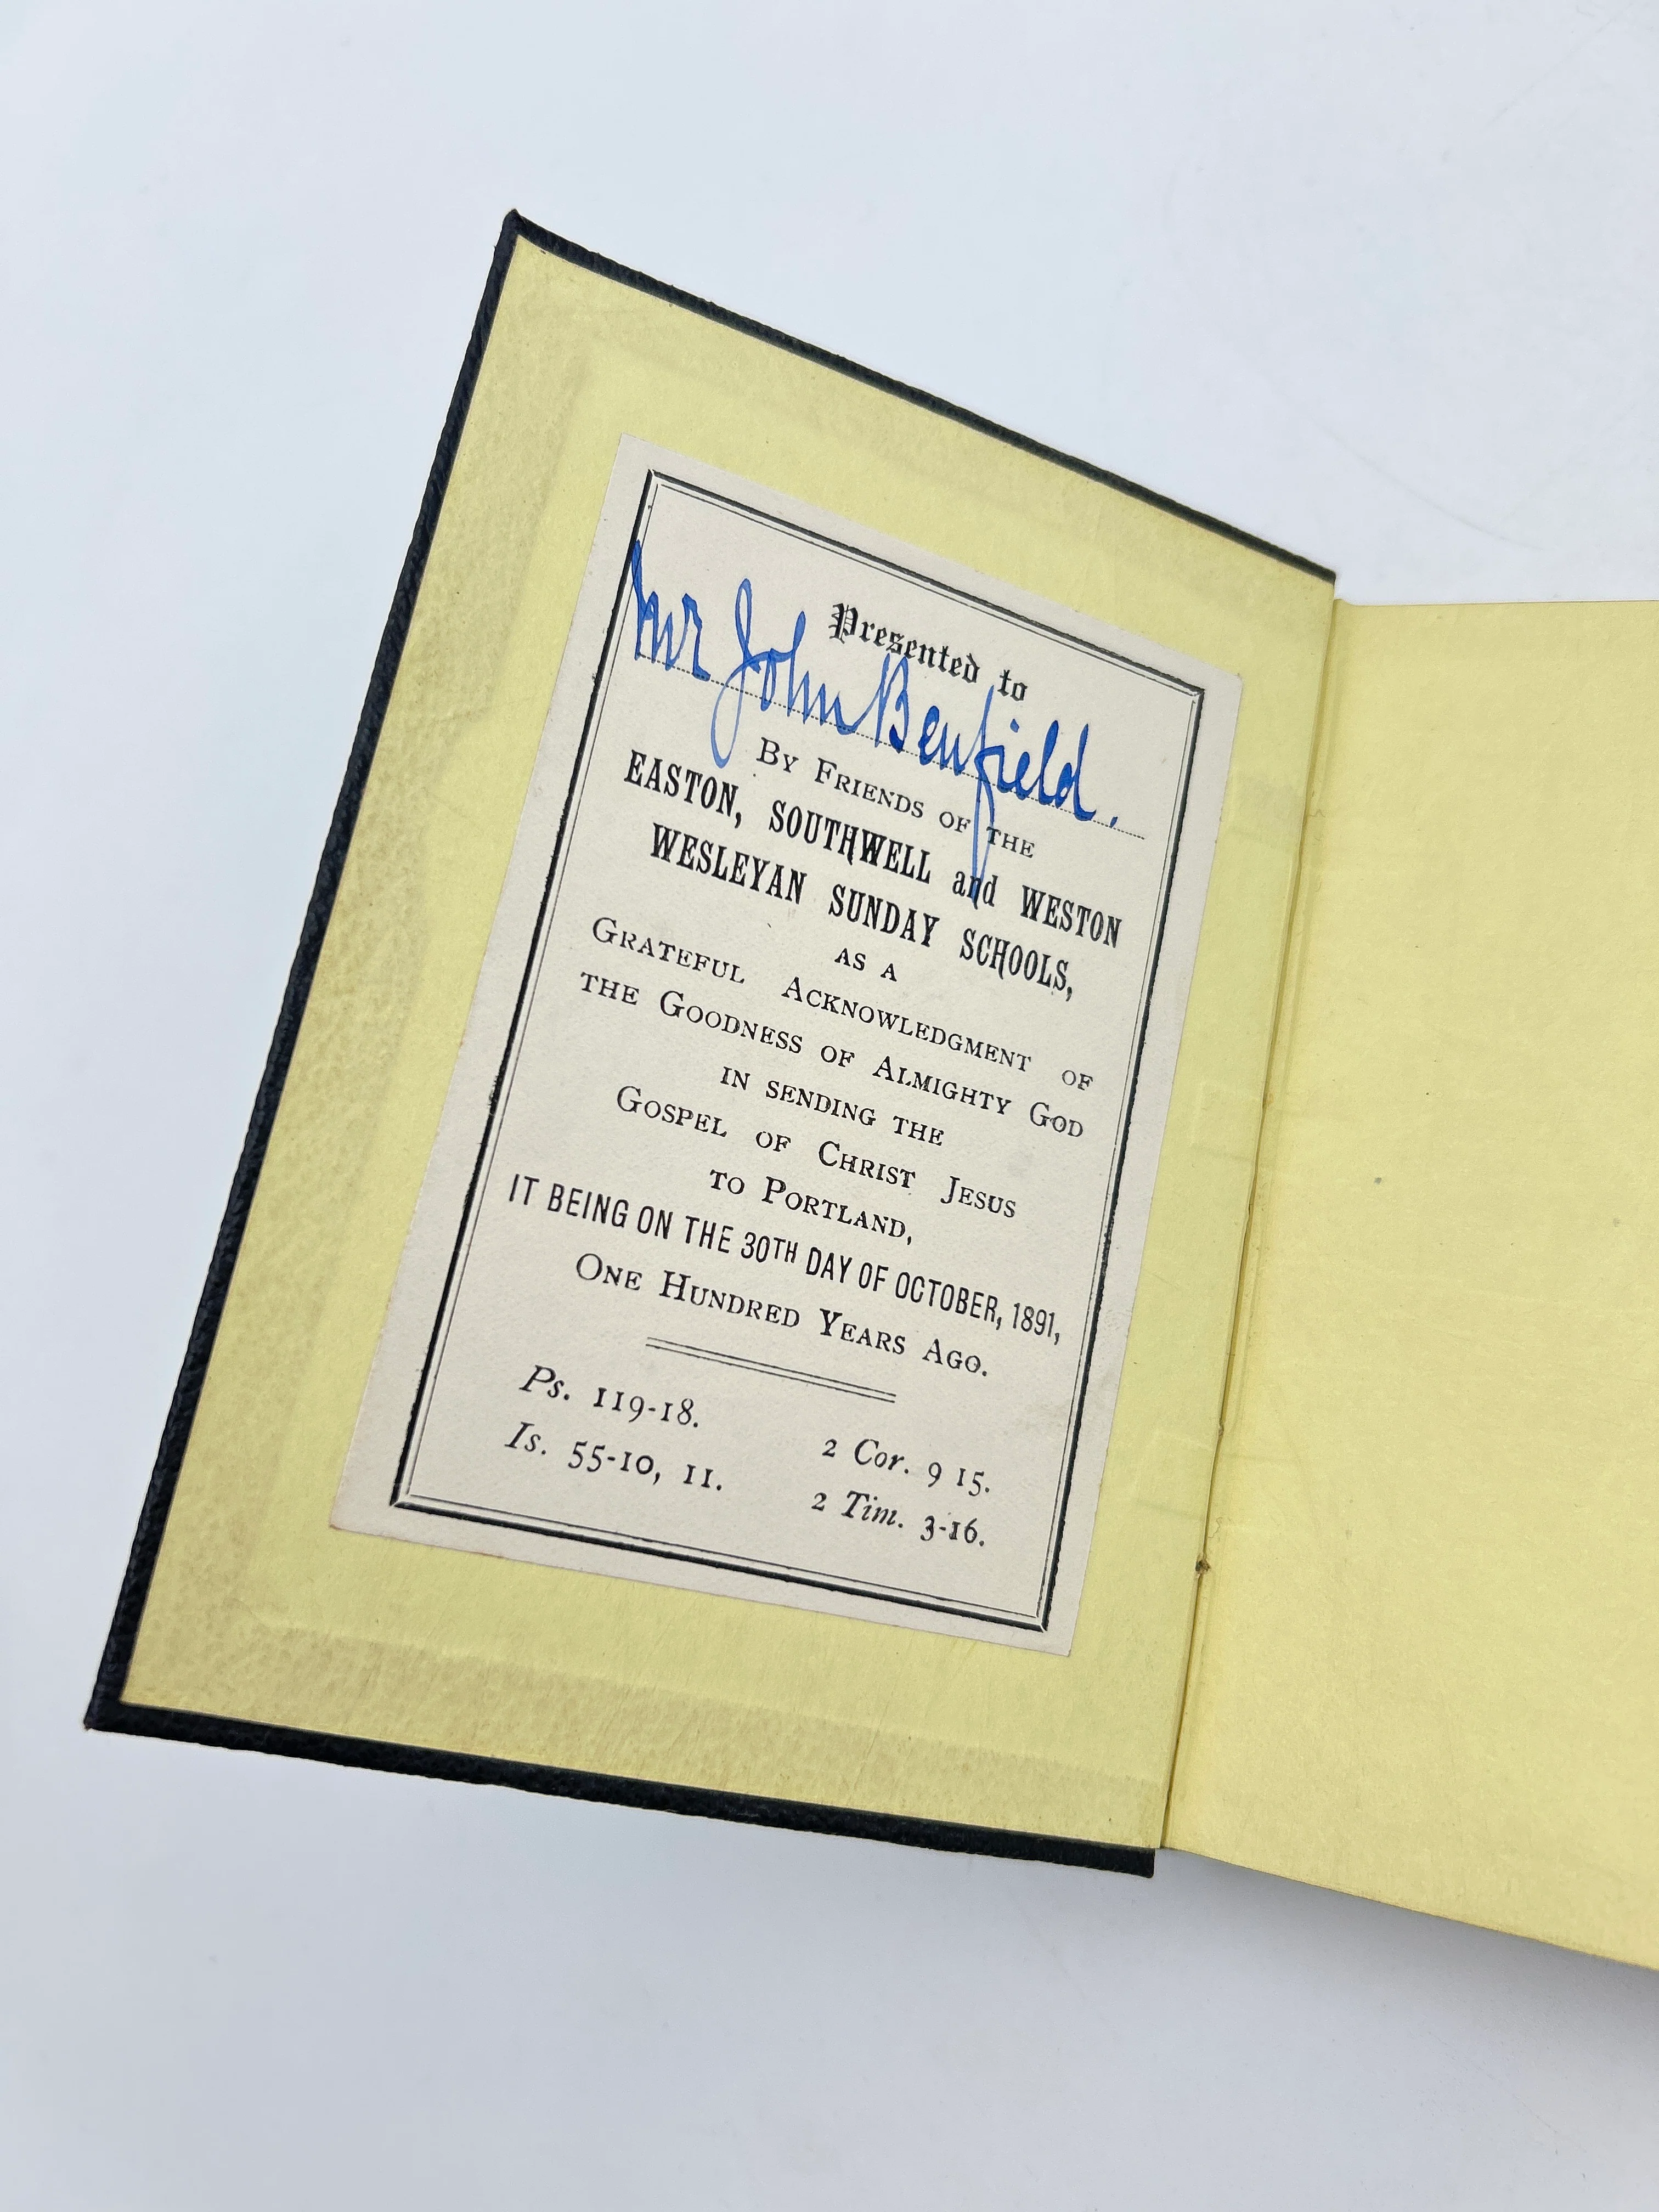 Presented to
Mr John Benfield.
By Friends of the
EASTON, SOUTHWELL and WESTON
WESLEYAN SUNDAY SCHOOLS,
AS A
Grateful Acknowledgment of
the Goodness of Almighty God
in sending the
Gospel of Christ Jesus
to Portland,
IT BEING ON THE 30TH DAY OF OCTOBER, 1891,
One Hundred Years Ago.
Ps. 119-18.
2 Cor. 9 15.
Is. 55-10, 11.
2 Tim. 3-16.